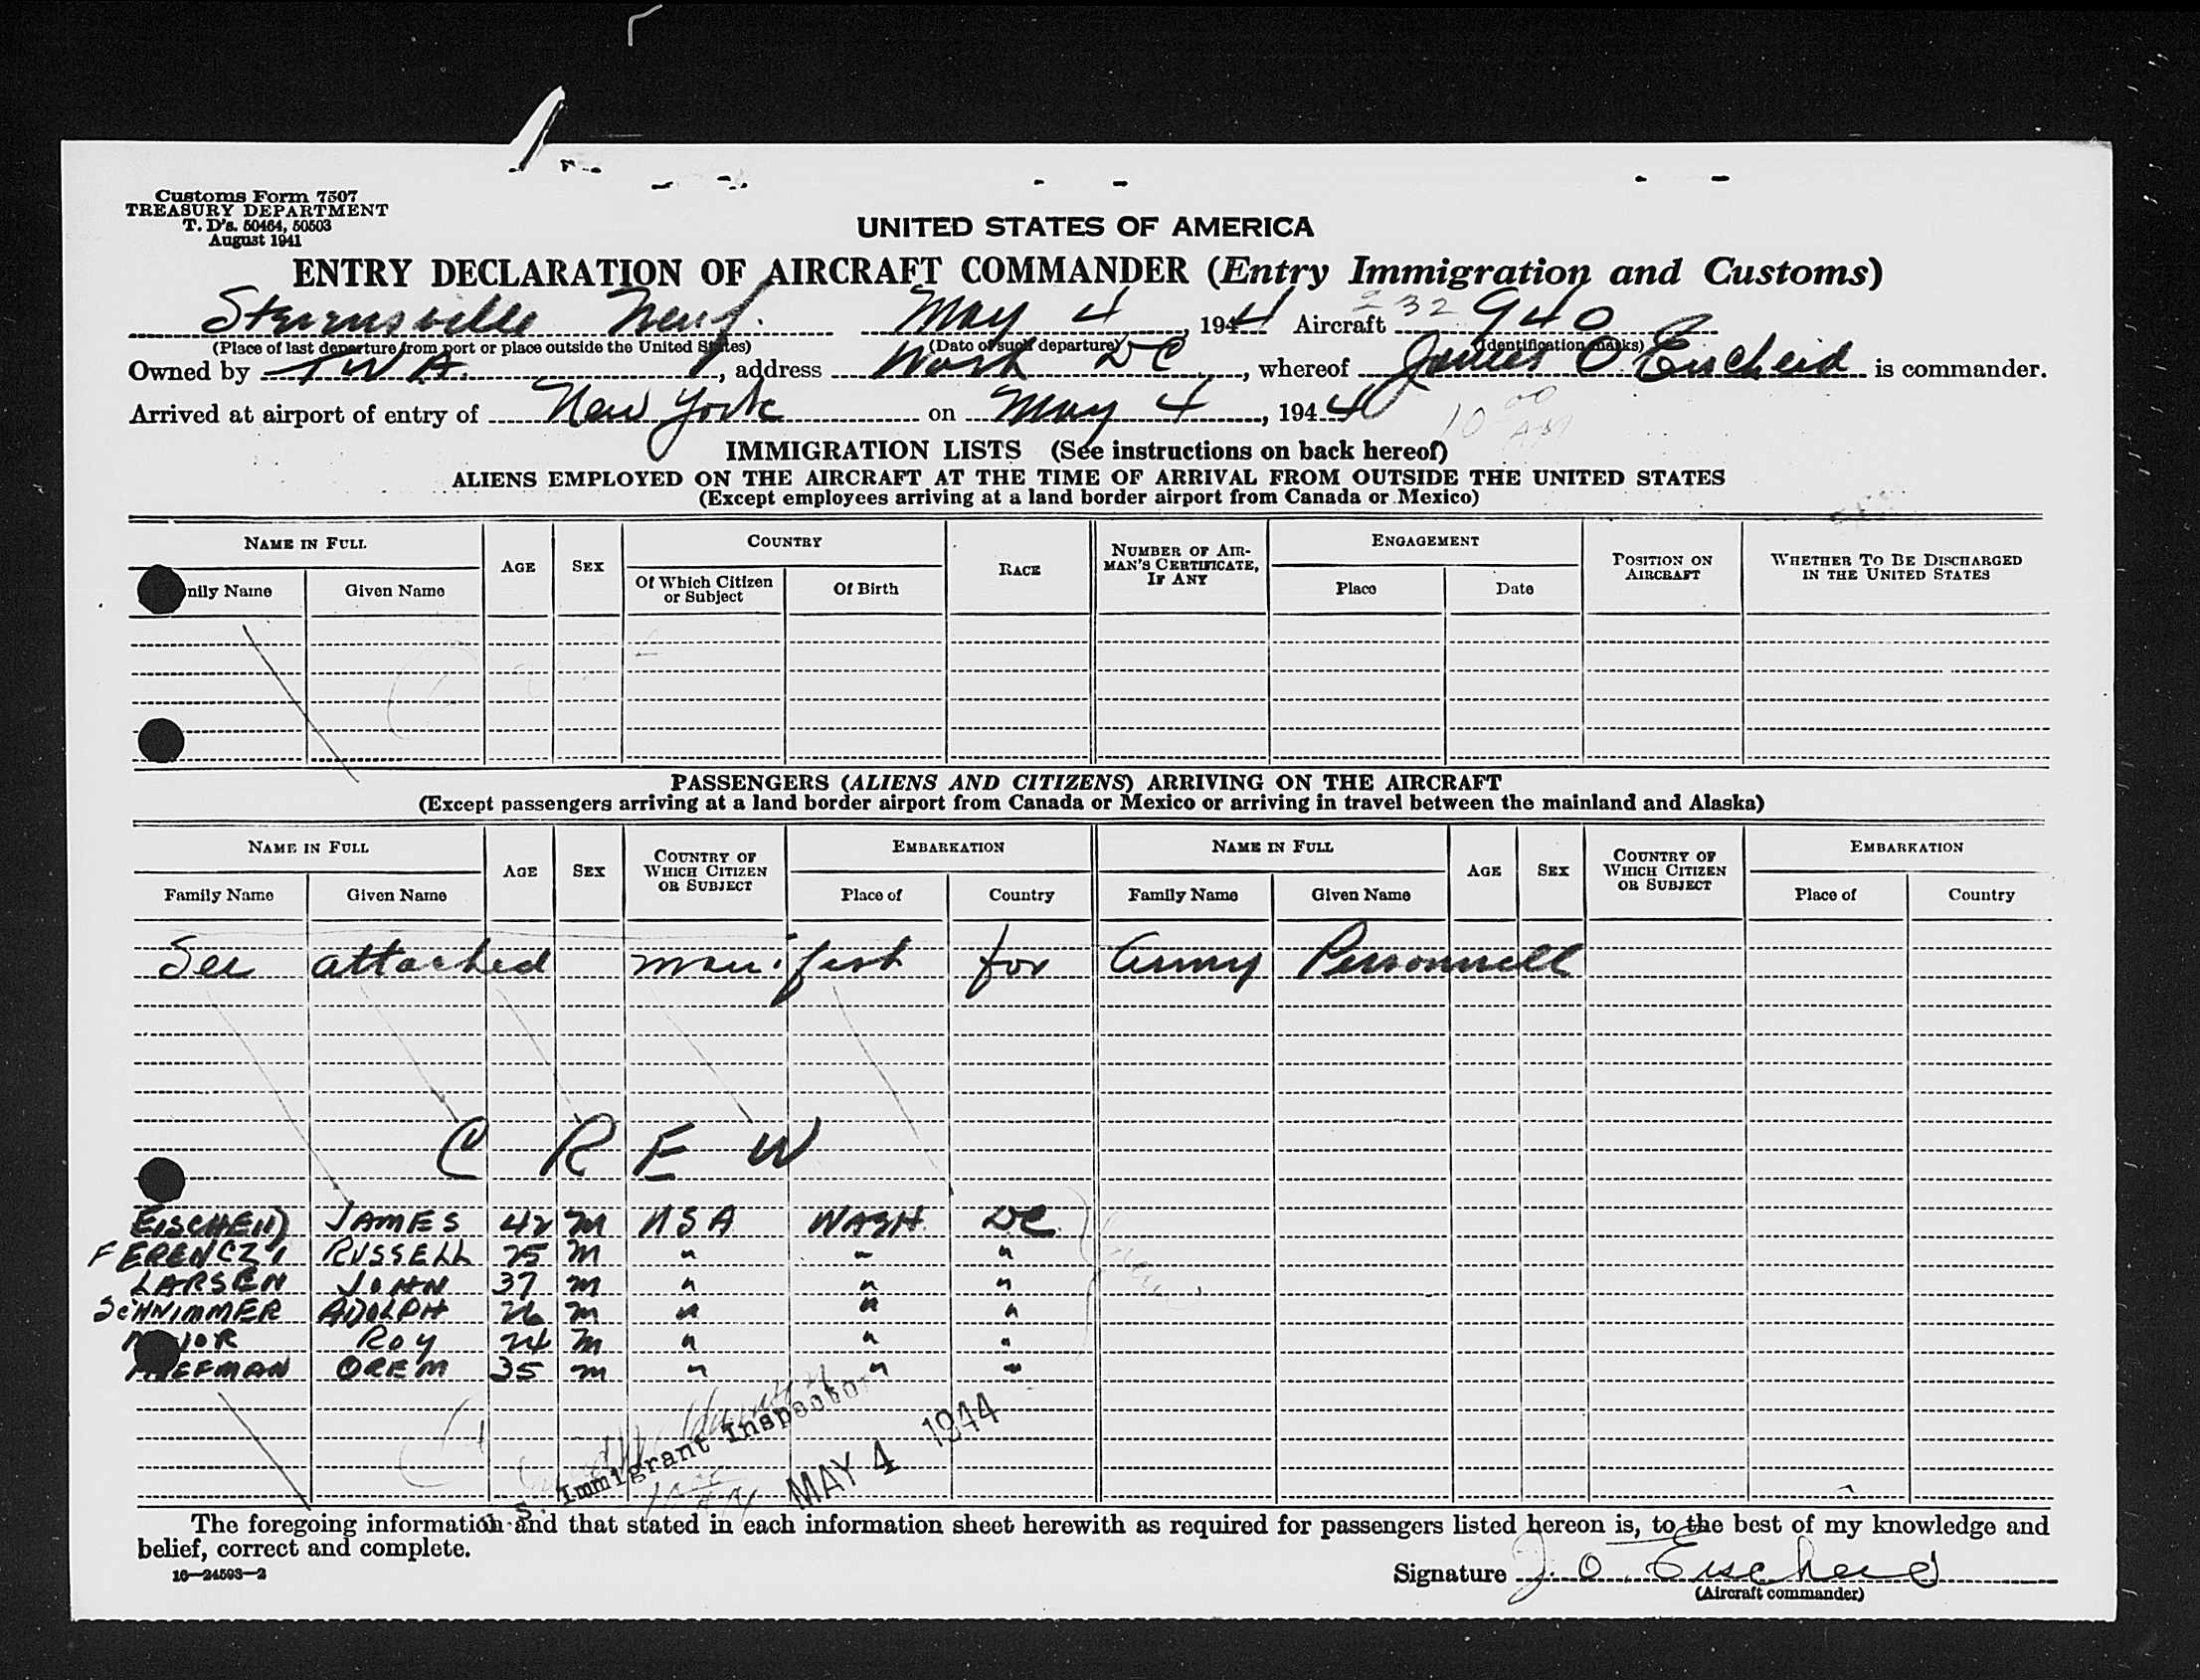 Customs Form 7507
TREASURY DEPARTMENT
T. D's. 50464, 50503
August 1941
UNITED STATES OF AMERICA
ENTRY DECLARATION OF AIRCRAFT COMMANDER (Entry Immigration and Customs)
Stevensville Newf. May 4, 1944 Aircraft 232940
(Place of last departure from port or place outside the United States) (Date of such departure) (Identification marks)
Owned by TWA, address Wash DC, whereof James O Eischeid is commander.
Arrived at airport of entry of New York on May 4, 1944 10 00 AM
IMMIGRATION LISTS (See instructions on back hereof)
ALIENS EMPLOYED ON THE AIRCRAFT AT THE TIME OF ARRIVAL FROM OUTSIDE THE UNITED STATES
(Except employees arriving at a land border airport from Canada or Mexico)
NAME IN FULL AGE SEX COUNTRY RACE NUMBER OF AIRMAN'S CERTIFICATE, IF ANY ENGAGEMENT POSITION ON AIRCRAFT WHETHER TO BE DISCHARGED IN THE UNITED STATES
nily Name Given Name Of Which Citizen or Subject Of Birth Place Date
PASSENGERS (ALIENS AND CITIZENS) ARRIVING ON THE AIRCRAFT
(Except passengers arriving at a land border airport from Canada or Mexico or arriving in travel between the mainland and Alaska)
NAME IN FULL AGE SEX COUNTRY OF WHICH CITIZEN OR SUBJECT EMBARKATION NAME IN FULL AGE SEX COUNTRY OF WHICH CITIZEN OR SUBJECT EMBARKATION
Family Name Given Name Place of Country Family Name Given Name Place of Country
See attached manifest for Army Personnell
CREW
EISCHEID JAMES 42 M USA WASH. DC.
FERENCZI RUSSELL 25 M " " "
LARSEN JOHN 37 M " " "
SCHWIMMER ADOLPH 26 M " " "
ROY 24 M " " "
OREM 35 M " " "
S. Immigrant Inspector
MAY 4 1944
The foregoing information and that stated in each information sheet herewith as required for passengers listed hereon is, to the best of my knowledge and
belief, correct and complete.
16—24593—2
Signature J. O. Eischeid
(Aircraft commander)